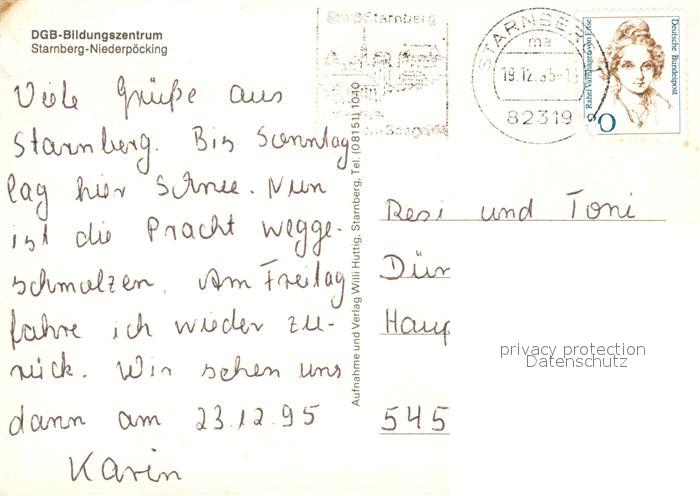 DGB-Bildungszentrum
Starnberg-Niederpöcking
Viele Grüße aus
Starnberg. Bis Sonntag
lag hier Schnee. Nun
ist die Pracht wegge-
schmolzen. Am Freitag
fahre ich wieder zu-
rück. Wir sehen uns
dann am 23.12.95
Karin
Aufnahme und Verlag Willi Huttig, Starnberg, Tel. (08151) 1040
Starnberg
STARNBERG
ma
19.12.95-1
82319
Rahel Varnhagen von Ense
Deutsche Bundespost
Resi und Toni
Dür
Haup
545
privacy protection
Datenschutz